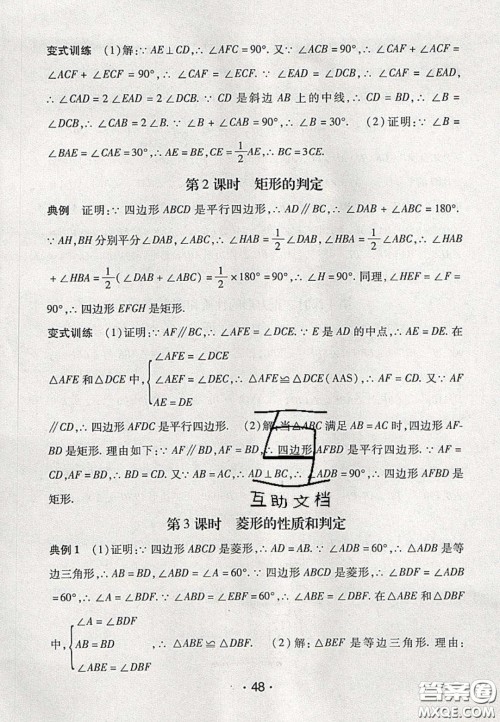 变式训练　(1)解:∵ AE⊥CD,∴ ∠AFC=90°. 又∵ ∠ACB=90°,∴ ∠CAF+∠ACF=
∠ACF+∠ECF=90°,∴ ∠CAF=∠ECF. ∵ ∠EAD=∠DCB,∴ ∠CAD=2∠EAD,∴
∠CAD=2∠EAD=2∠DCB. ∵ CD 是斜边 AB 上的中线,∴ CD=BD,∴ ∠B=
∠DCB,∴ ∠CAB=2∠B. ∵ ∠B+∠CAB=90°,∴ ∠B=30°. (2)证明:∵ ∠B=
∠BAE=∠CAE=30°,∴ AE=BE,CE=1/2AE,∴ BC=3CE.
第 2 课时　矩形的判定
典例　证明:∵ 四边形 ABCD 是平行四边形,∴ AD∥BC,∴ ∠DAB+∠ABC=180°.
∵ AH,BH 分别平分∠DAB,∠ABC,∴ ∠HAB=1/2∠DAB,∠HBA=1/2∠ABC,∴ ∠HAB
+∠HBA=1/2(∠DAB+∠ABC)=1/2×180°=90°,∴ ∠H=90°. 同理,∠HEF=∠F=
90°,∴ 四边形 EFGH 是矩形.
变式训练　(1)证明:∵ AF∥BC,∴ ∠AFE=∠DCE. ∵ E 是 AD 的中点,∴ AE=DE. 在
△AFE 和△DCE 中,{∠AFE=∠DCE
∠AEF=∠DEC,∴ △AFE≌△DCE(AAS),∴ AF=CD. 又∵ AF
AE=DE
∥CD,∴ 四边形 AFDC 是平行四边形. (2)解:当△ABC 满足 AB=AC 时,四边形 AF-
BD 是矩形. 理由如下:∵ AF∥BD,AF=BD,∴ 四边形 AFBD 是平行四边形. ∵ AF=
CD,AF=BD,∴ BD=CD. 又∵ AB=AC,∴ AD⊥BC,∴ ∠ADB=90°,∴ 四边形 AFBD 是
矩形.
互助文档
第 3 课时　菱形的性质和判定
典例 1　(1)证明:∵ 四边形 ABCD 是菱形,∴ AD=AB. ∵ ∠ADB=60°,∴ △ADB 是等
边三角形,∴ AB=BD,∠ABD=∠A=60°. ∵ 四边形 ABCD 是菱形,∴ ∠BDF=∠ABD
=60°,∴ ∠A=∠BDF. ∵ ∠EBF=60°,∴ ∠ABE=∠DBF. 在△ABE 和△DBF
中,{∠A=∠BDF
AB=BD　,∴ △ABE≌△DBF. (2)解:△BEF 是等边三角形. 理由:
∠ABE=∠DBF
· 48 ·
答案圈
MXQE.COM